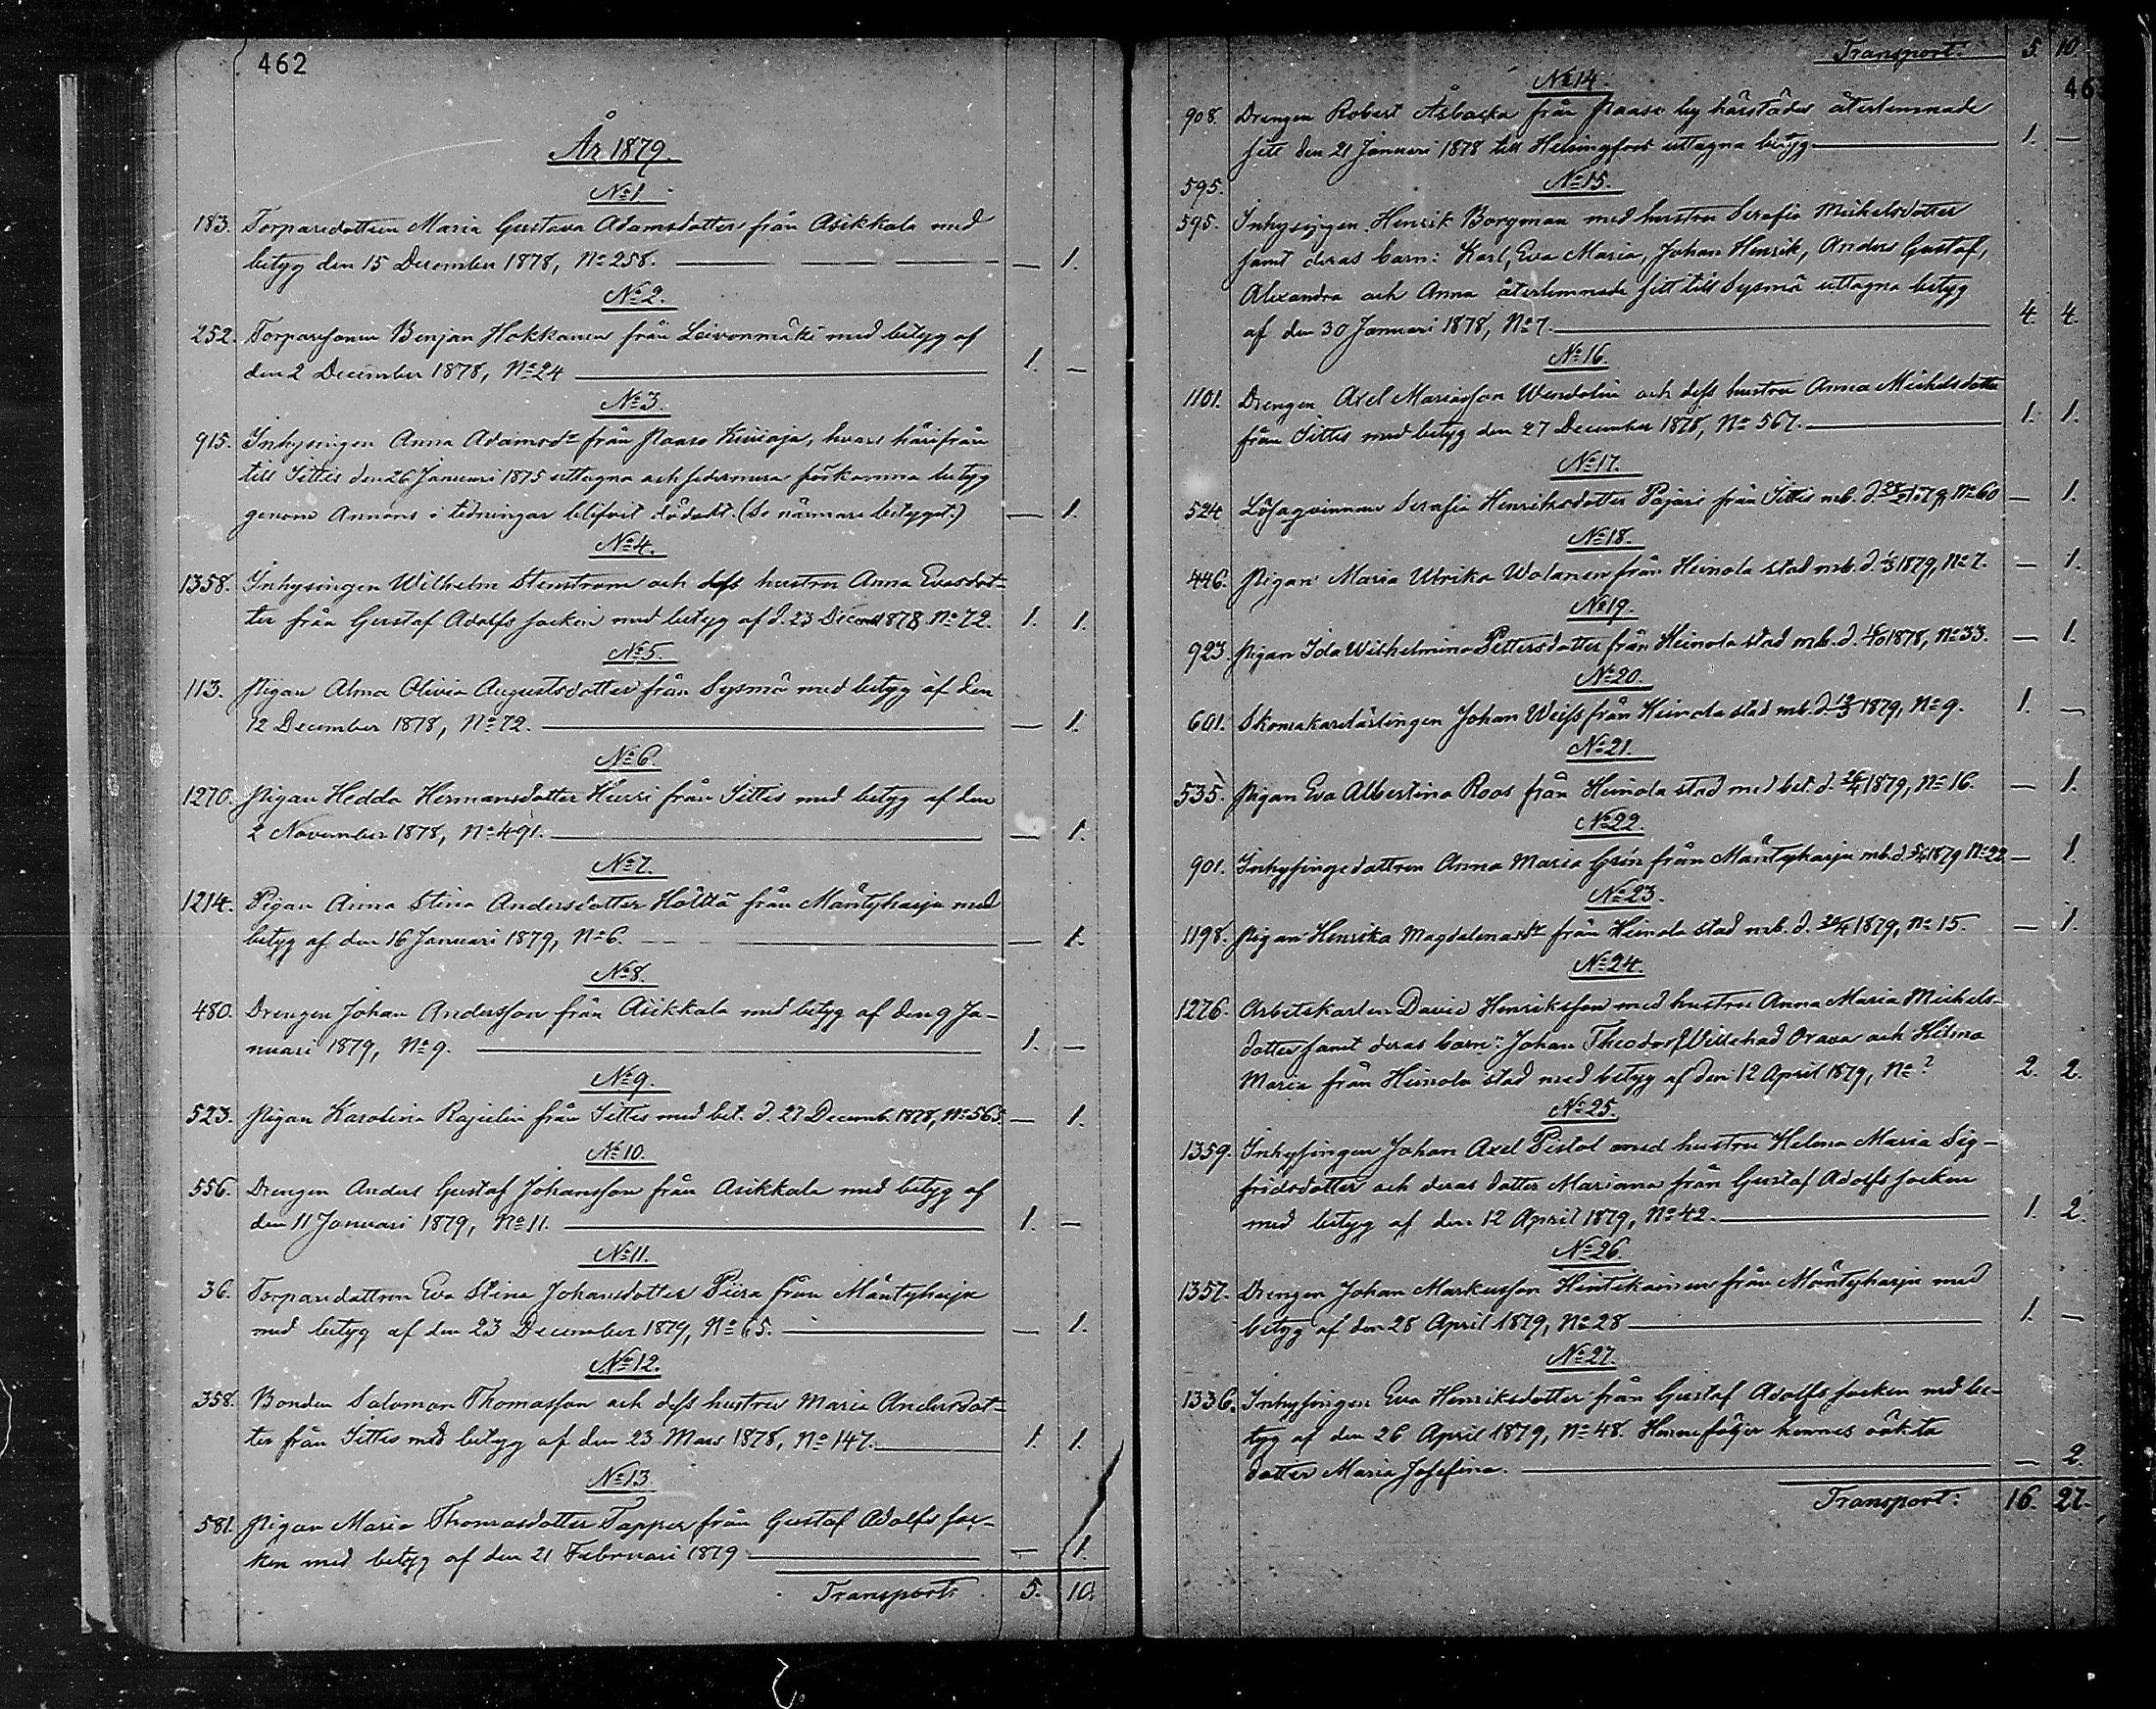 462
År 1879.
No 1
183. Torparedottren Maria Gustava Adamsdotter från Asikkala med
betyg den 15 December 1878, No 258. — 1.
No 2.
252. Torparesonen Benjam Hokkanen från Leivonmäki med betyg af
den 2 December 1878, No 24 1. —
No 3.
915. Inhysingen Anna Adamsdr från Paaso, hvars härifrån
till Iittis den 26 Januari 1875 uttagna och sedermera förkomna betyg
genom Annons i tidningar blifvit dödadt. (Se närmare betyget.) — 1.
No 4.
1358. Inhysingen Wilhelm Stenström och dess hustru Anna Evasdot-
ter från Gustaf Adolfs socken med betyg af d. 23 Decemb 1878 No 72. 1. 1.
No 5.
113. Pigan Alma Olivia Augustsdotter från Sysmä med betyg af den
12 December 1878, No 72. — 1.
No 6.
1270. Pigan Hedda Hermansdotter Hurri från Iittis med betyg af den
2 November 1878, No 491. — 1.
No 7.
1214. Pigan Anna Stina Andersdotter Hölttä från Mäntyharju med
betyg af den 16 Januari 1879, No 6. — 1.
No 8.
480. Drengen Johan Andersson från Asikkala med betyg af den 9 Ja-
nuari 1879, No 9. 1. —
No 9.
523. Pigan Karolina Rajelin från Iittis med bet. d. 27 Decemb. 1878, No 565. — 1.
No 10.
556. Drengen Anders Gustaf Johansson från Asikkala med betyg af
den 11 Januari 1879, No 11. 1. —
No 11.
36. Torparedottren Eva Stina Johansdotter Piira från Mäntyharju
med betyg af den 23 December 1879, No 65. — 1.
No 12.
358. Bonden Salomon Thomasson och dess hustru Maria Andersdot-
ter från Iittis med betyg af den 23 Mars 1878, No 147. 1. 1.
No 13.
581. Pigan Maria Thomasdotter Tapper från Gustaf Adolfs soc-
ken med betyg af den 21 Februari 1879 — 1.
Transport: 5. 10.
Transport: 5. 10
46
No 14
908. Drengen Robert Åsbacka från Paaso by härstädes återlemnade
sitt den 21 Januari 1878 till Helsingfors uttagna betyg 1. —
595. No 15.
595. Inhysingen Henrik Borgman med hustru Serafia Michelsdotter
samt deras barn: Karl, Eva Maria, Johan Henrik, Anders Gustaf,
Alexandra och Anna återlemnade sitt till Sysmä uttagna betyg
af den 30 Januari 1878, No 7. 4. 4.
No 16.
1101. Drengen Axel Mariasson Wendelin och dess hustru Anna Michelsdotter
från Iittis med betyg den 27 December 1878, No 567. 1. 1.
No 17.
524. Lösaqvinnan Serafia Henriksdotter Pajari från Iittis mb. d. 1879 No 60 — 1.
No 18.
446. Pigan Maria Ulrika Wolanen från Heinola stad mb. d. 1/3 1879, No 7. — 1.
No 19.
923. Pigan Ida Wilhelmina Pettersdotter från Heinola stad mb. d. 1878, No 33. — 1.
No 20.
601. Skomakarelärlingen Johan Weiss från Heinola stad mb. d. 1879, No 9. 1. —
No 21.
535. Pigan Eva Albertina Roos från Heinola stad med bet. d. 26/4 1879, No 16. — 1.
No 22.
901. Inhysingedottren Anna Maria Grén från Mäntyharju mb. d. 1879 No 22 — 1.
No 23.
1198. Pigan Henrika Magdalenasdr från Heinola stad mb. d. 1879, No 15. — 1.
No 24.
1276. Arbetskarlen David Henriksson med hustru Anna Maria Michels-
dotter samt deras barn: Johan Theodor Willehad Orava och Hilma
Maria från Heinola stad med betyg af den 12 April 1879, No ? 2. 2.
No 25.
1359. Inhysingen Johan Axel Pistol med hustru Helena Maria Sig-
fridsdotter och deras dotter Mariana från Gustaf Adolfs socken
med betyg af den 12 April 1879, No 42. 1. 2.
No 26.
1357. Drengen Johan Markusson Hintikainen från Mäntyharju med
betyg af den 28 April 1879, No 28 1. —
No 27.
1336. Inhysingen Eva Henriksdotter från Gustaf Adolfs socken med be-
tyg af den 26 April 1879, No 48. Henne följer hennes oäkta
dotter Maria Josefina. — 2.
Transport: 16. 27.